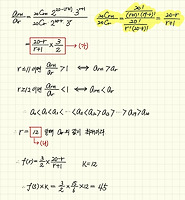 a_{r+1}/a_r = 20C_{r+1} 2^{20-(r+1)} 3^{r+1} / 20C_r 2^{20-r} 3^r
20C_{r+1}/20C_r = (20!/((r+1)!(19-r)!))/(20!/(r!(20-r)!)) = (20-r)/(r+1)
= (20-r)/(r+1) × 3/2 → (가)
r≤11 이면 a_{r+1}/a_r > 1 ⟺ a_{r+1} > a_r
r≥12 이면 a_{r+1}/a_r < 1 ⟺ a_{r+1} < a_r
a_0<a_1<a_2< ⋯ <a_{12}>a_{13}> ⋯ >a_{20}
∴ r = 12 일때
→ (나)
∴ f(r) = 3/2 × (20-r)/(r+1) K=12
∴ f(2)×K = 3/2 × 18/3 × 12